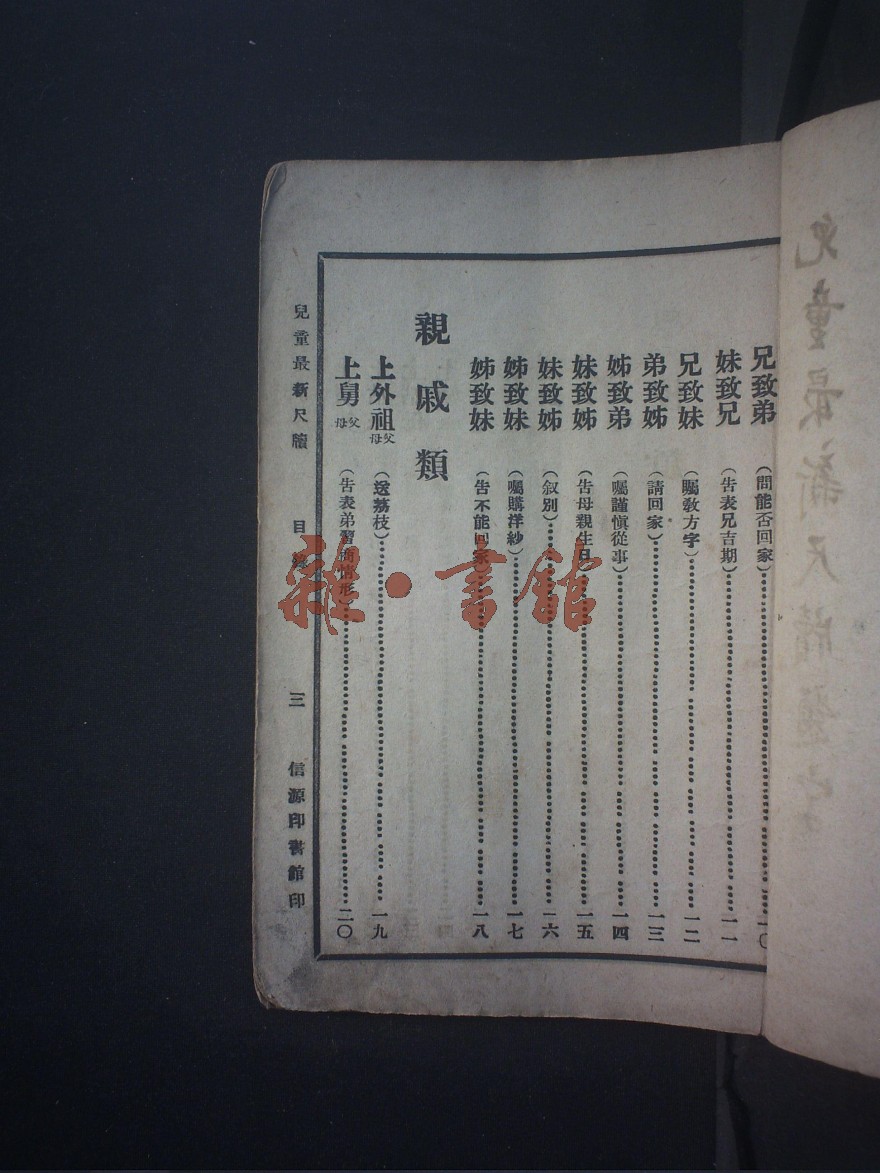 兄致弟（問能否回家）一〇
妹致兄（告表兄吉期）一一
兄致妹（囑教方字）一二
弟致姊（請回家）一三
姊致弟（囑謹愼從事）一四
妹致姊（告母親生日）一五
妹致姊（敘別）一六
姊致妹（囑購洋紗）一七
姊致妹（告不能回家）一八
親戚類
上外祖父母（送荔枝）一九
上舅父母（告表弟習商情形）二〇
兒童最新尺牘　目錄　三　信源印書館印
兒童最新尺牘
雜·書館